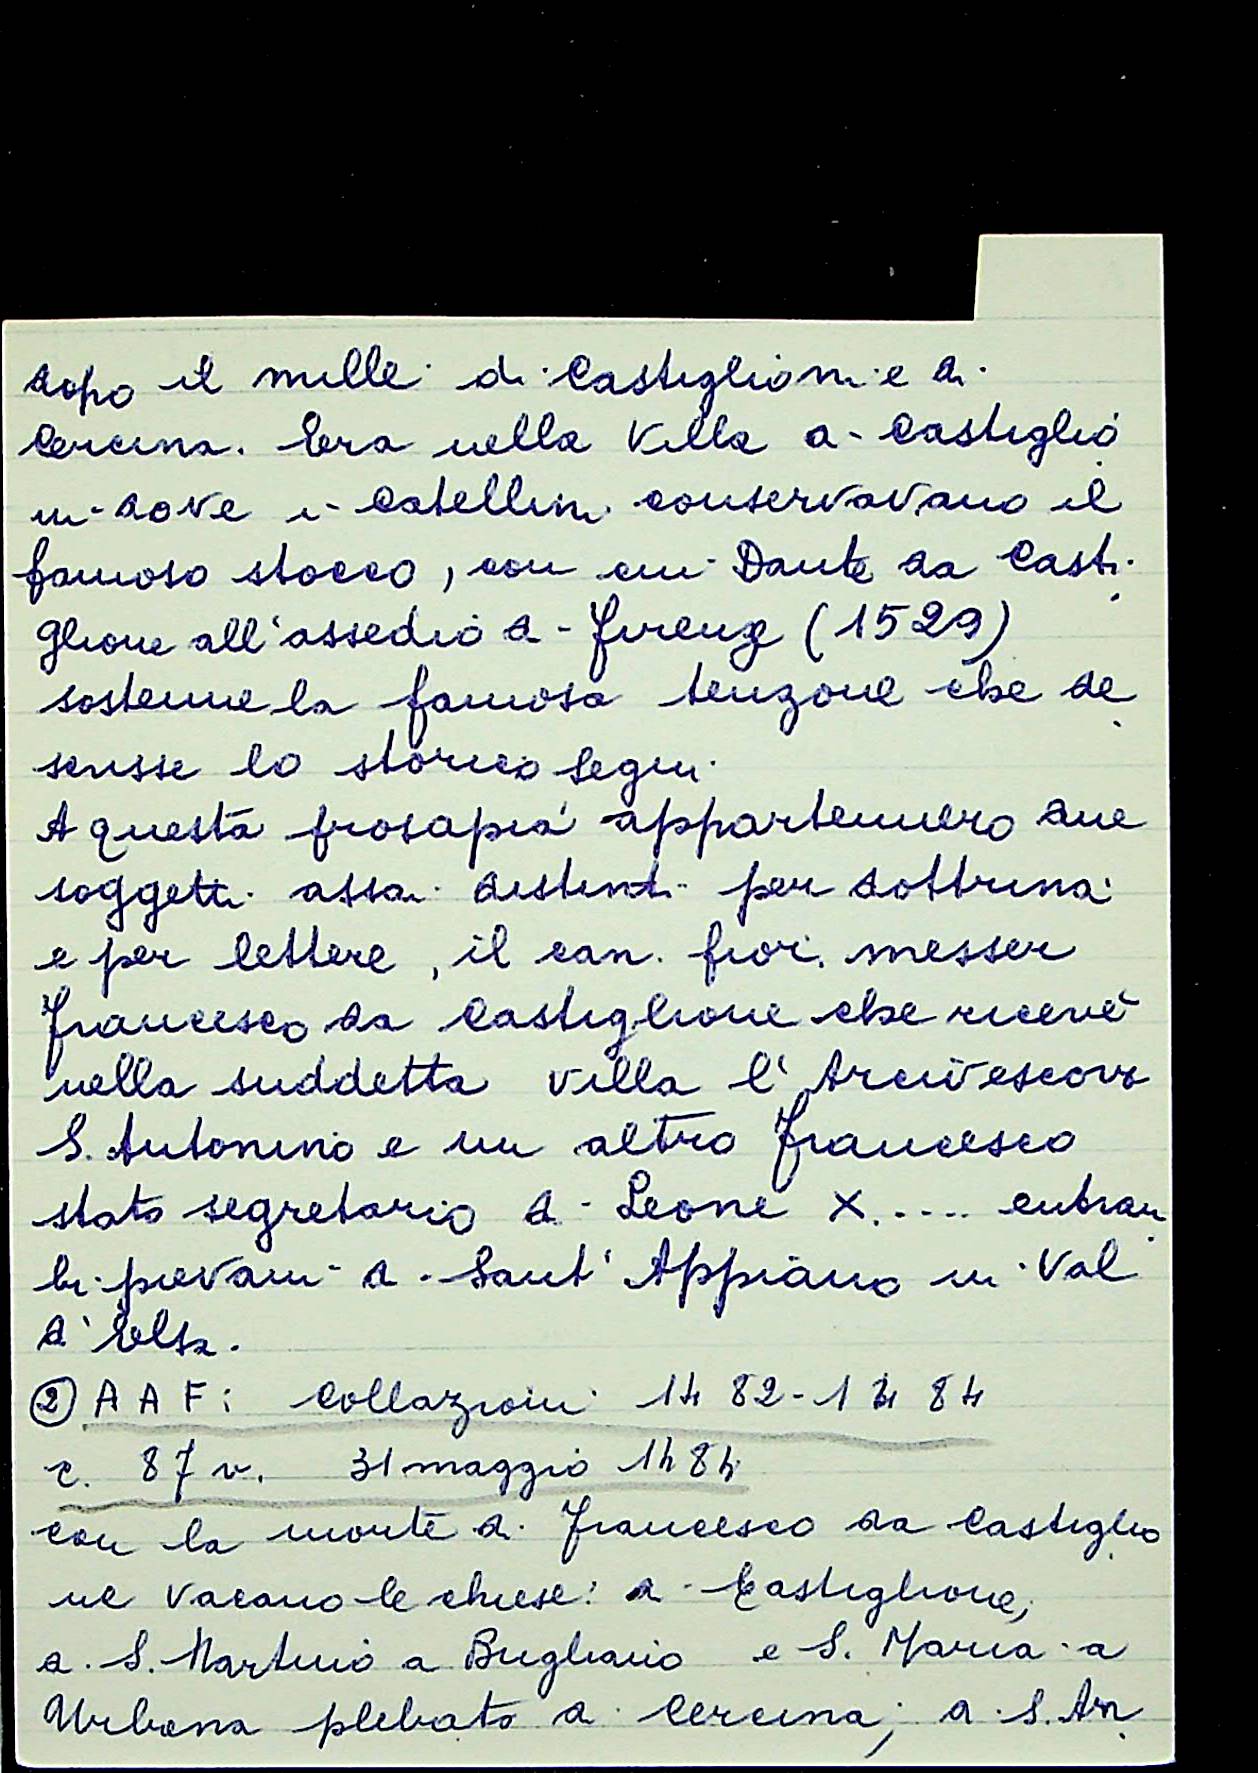 dopo il mille di Castiglioni e di
Cercina. Era nella Villa di Castiglio
ni dove i Catellini conservavano il
famoso stocco, con cui Dante da Casti
glione all'assedio di Firenze (1529)
sostenne la famosa tenzone che de
scrisse lo storico Segni.
A questa prosapia appartennero due
soggetti assai distinti per dottrina
e per lettere, il can. fior. messer
Francesco da Castiglione che ricevè
nella suddetta villa l'Arcivescovo
S. Antonino e un altro Francesco
stato segretario di Leone X..... entram
bi pievani di Sant'Appiano in Val
d'Elsa.
② AAF: Collazioni 1482-1484
c. 87 v. 31 maggio 1484
con la morte di Francesco da Castiglio
ne vacano le chiese: di Castiglione,
di S. Martino a Bugliano e S. Maria a
Urbana plebato di Cercina; di S. An